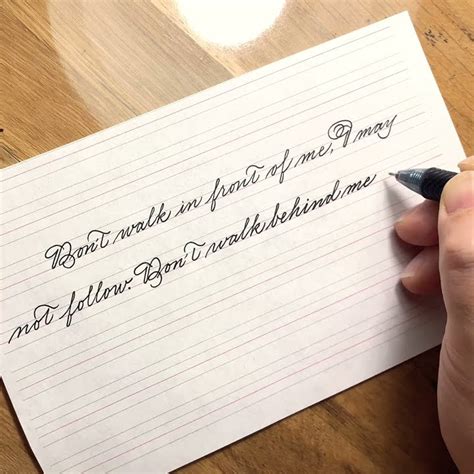 Don't walk in front of me, I may
not follow. Don't walk behind me